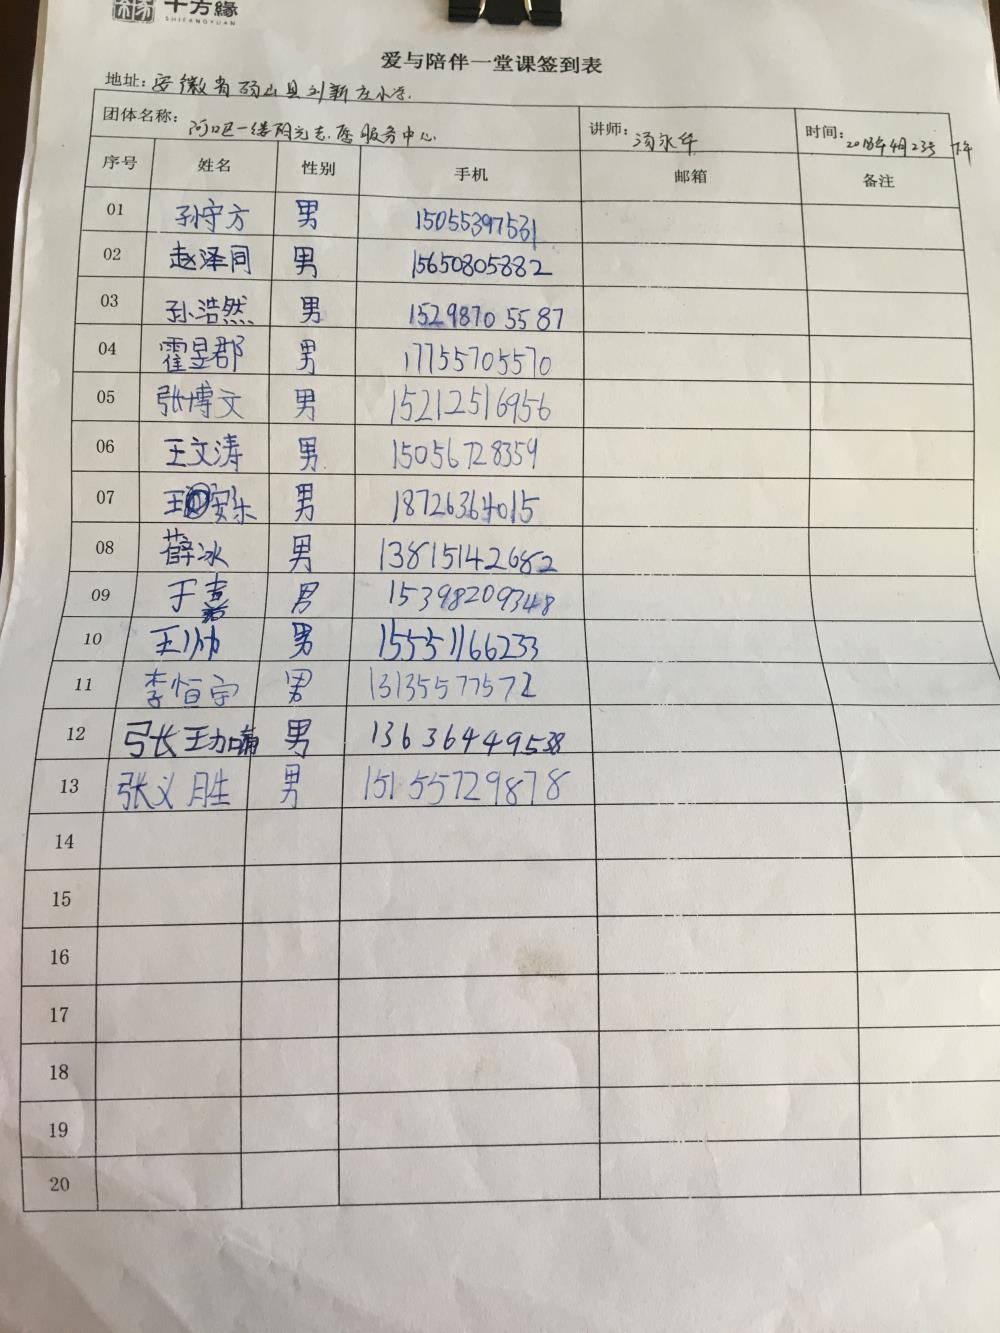 十方緣
SHIFANGYUAN
爱与陪伴一堂课签到表
地址：安徽省砀山县刘新庄小学.
团体名称： 河口区一缕阳光志愿服务中心 讲师： 汤永华 时间： 2018年4月23号 下午
序号 姓名 性别 手机 邮箱 备注
01 孙守方 男 15055397531
02 赵泽同 男 15650805882
03 孙浩然 男 15298705587
04 霍昱郡 男 17755705570
05 张博文 男 15212516956
06 王文涛 男 15056728359
07 王安乐 男 18726364015
08 薛冰 男 13815142682
09 于嘉 男 15398209348
10 王帅 男 15551166233
11 李恒宇 男 13135577572
12 张王力 男 13636449538
13 张义胜 男 15155729878
14
15
16
17
18
19
20